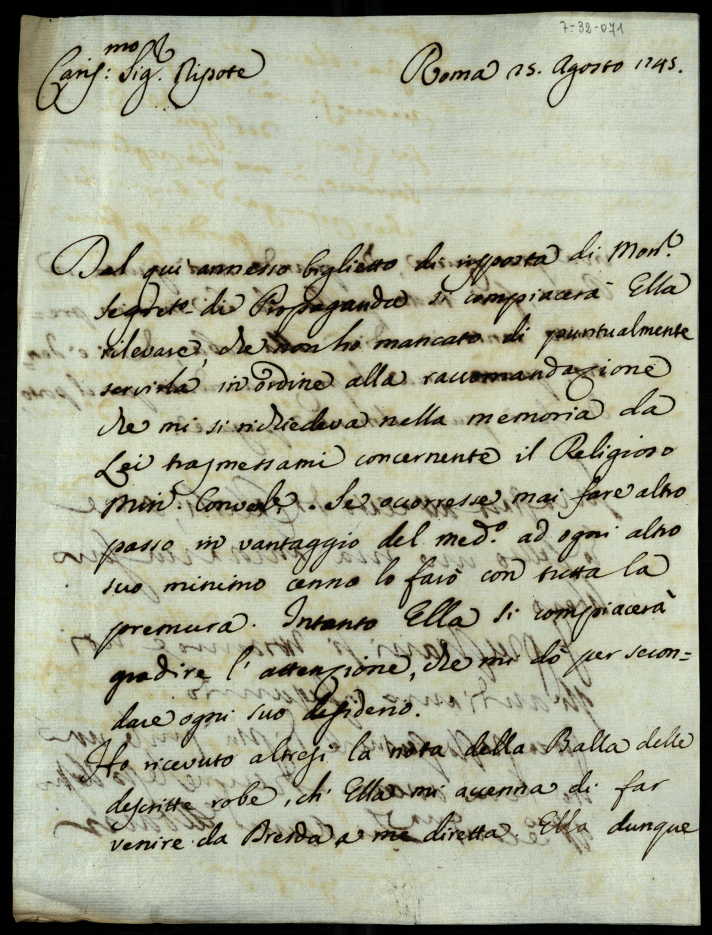 7-32-071
Cariss.mo Sig.r Nipote Roma 25. Agosto 1745.
Dal qui annesso biglietto di risposta di Mons.r
Segret.o di Propaganda si compiacerà Ella
rilevare, che non ho mancato di puntualmente
servirla in ordine alla raccomandazione
che mi si richiedeva nella memoria da
Lei trasmessami concernente il Religioso
Min.r Conven.le. Se occorresse mai fare altro
passo in vantaggio del med.o ad ogni altro
suo minimo cenno lo farò con tutta la
premura. Intanto Ella si compiacerà
gradire l'attenzione, che mi dò per secon=
dare ogni suo desiderio.
Ho ricevuto altresì la nota della Balla delle
descritte robe, ch'Ella mi accenna di far
venire da Breda a me diretta. Ella dunque